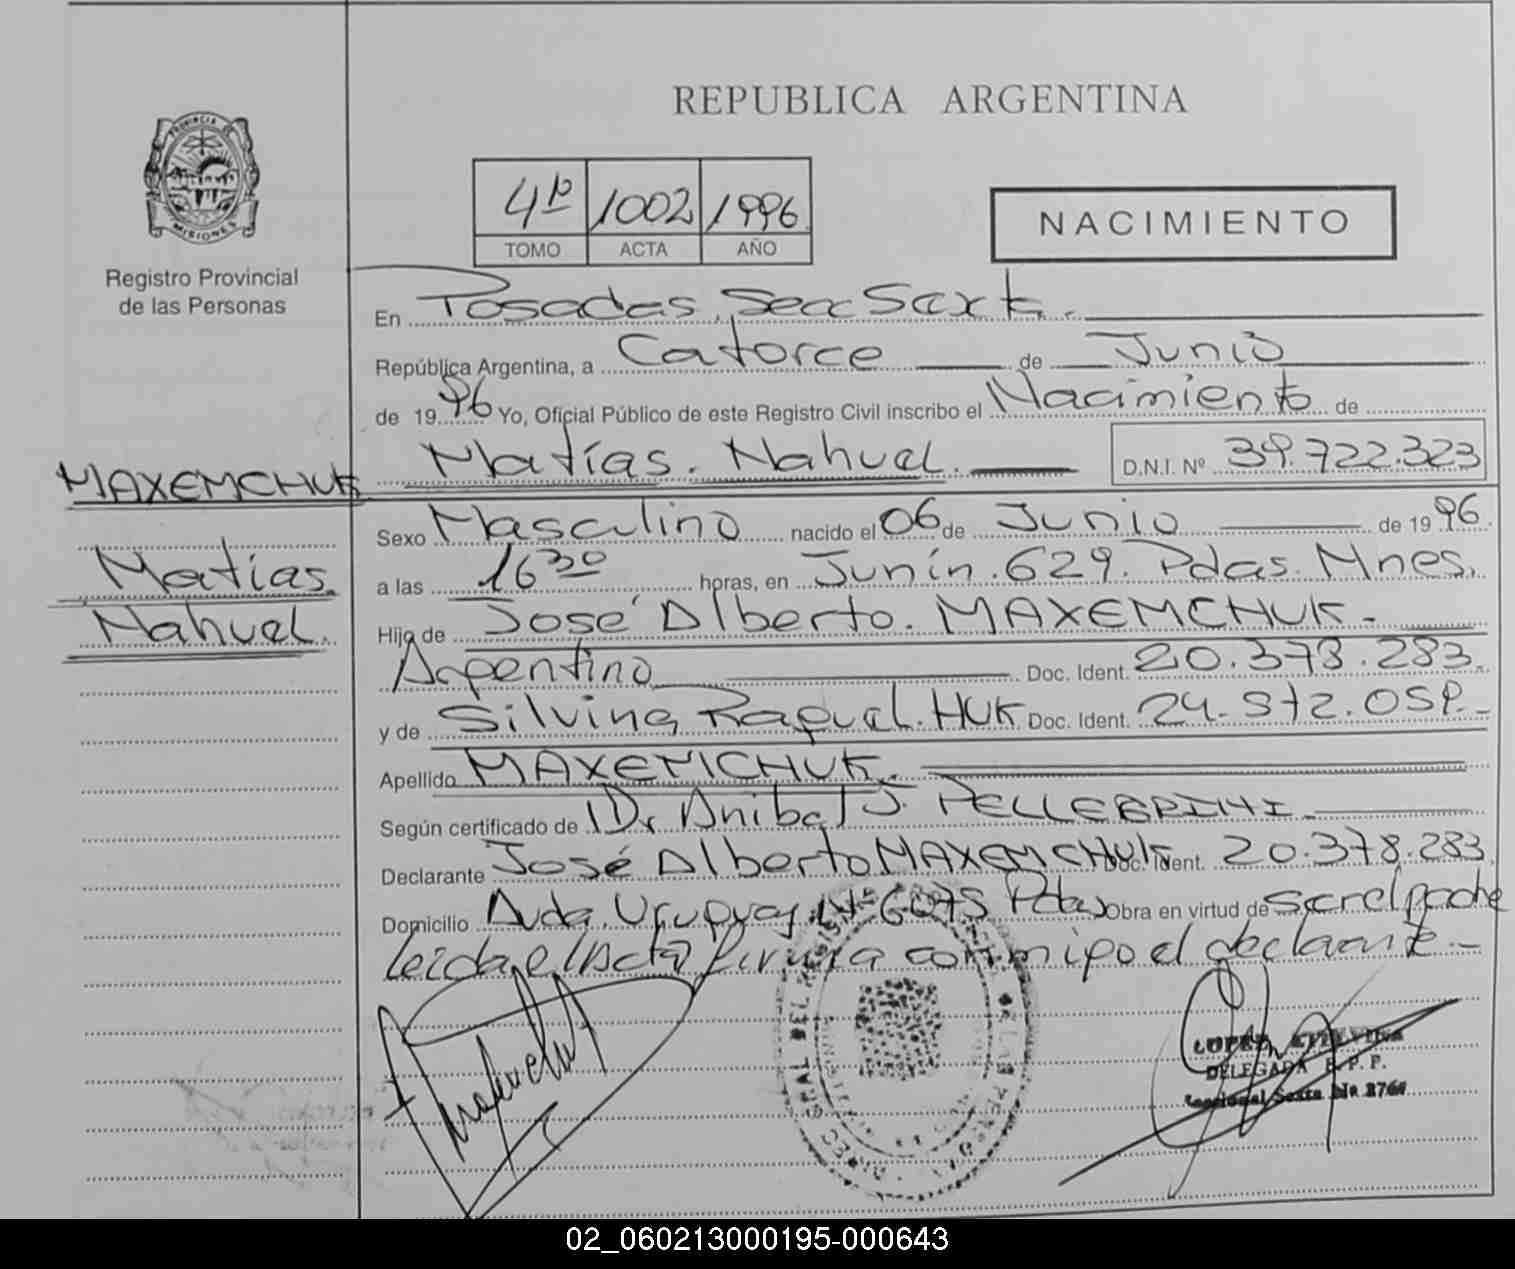 REPUBLICA ARGENTINA
PROVINCIA DE
MISIONES
Registro Provincial
de las Personas
4º 1002 1996
TOMO ACTA AÑO
NACIMIENTO
En Posadas, Secc Sexta.
República Argentina, a Catorce de Junio
de 1996 Yo, Oficial Público de este Registro Civil inscribo el Nacimiento de
Matías. Nahuel. D.N.I. Nº 39.722.323
MAXEMCHUK
Matías.
Nahuel.
Sexo Masculino nacido el 06 de Junio de 1996.
a las 16 30 horas, en Junín. 629. Pdas. Mnes.
Hijo de José Alberto. MAXEMCHUK.
Argentino Doc. Ident. 20.378.283.
y de Silvina Raquel. HUK Doc. Ident. 24.572.05
Apellido MAXEMCHUK.
Según certificado de Dr Anibal J. PELLEGRINI.
Declarante José Alberto MAXEMCHUK Doc. Ident. 20.378.283
Domicilio Avda. Uruguay Nº 6075 Pdas Obra en virtud de ser el padre
leida el Acta firma conmigo el declarante.-
DELEGADA R. P. P.
Seccional Sexta
02_060213000195-000643